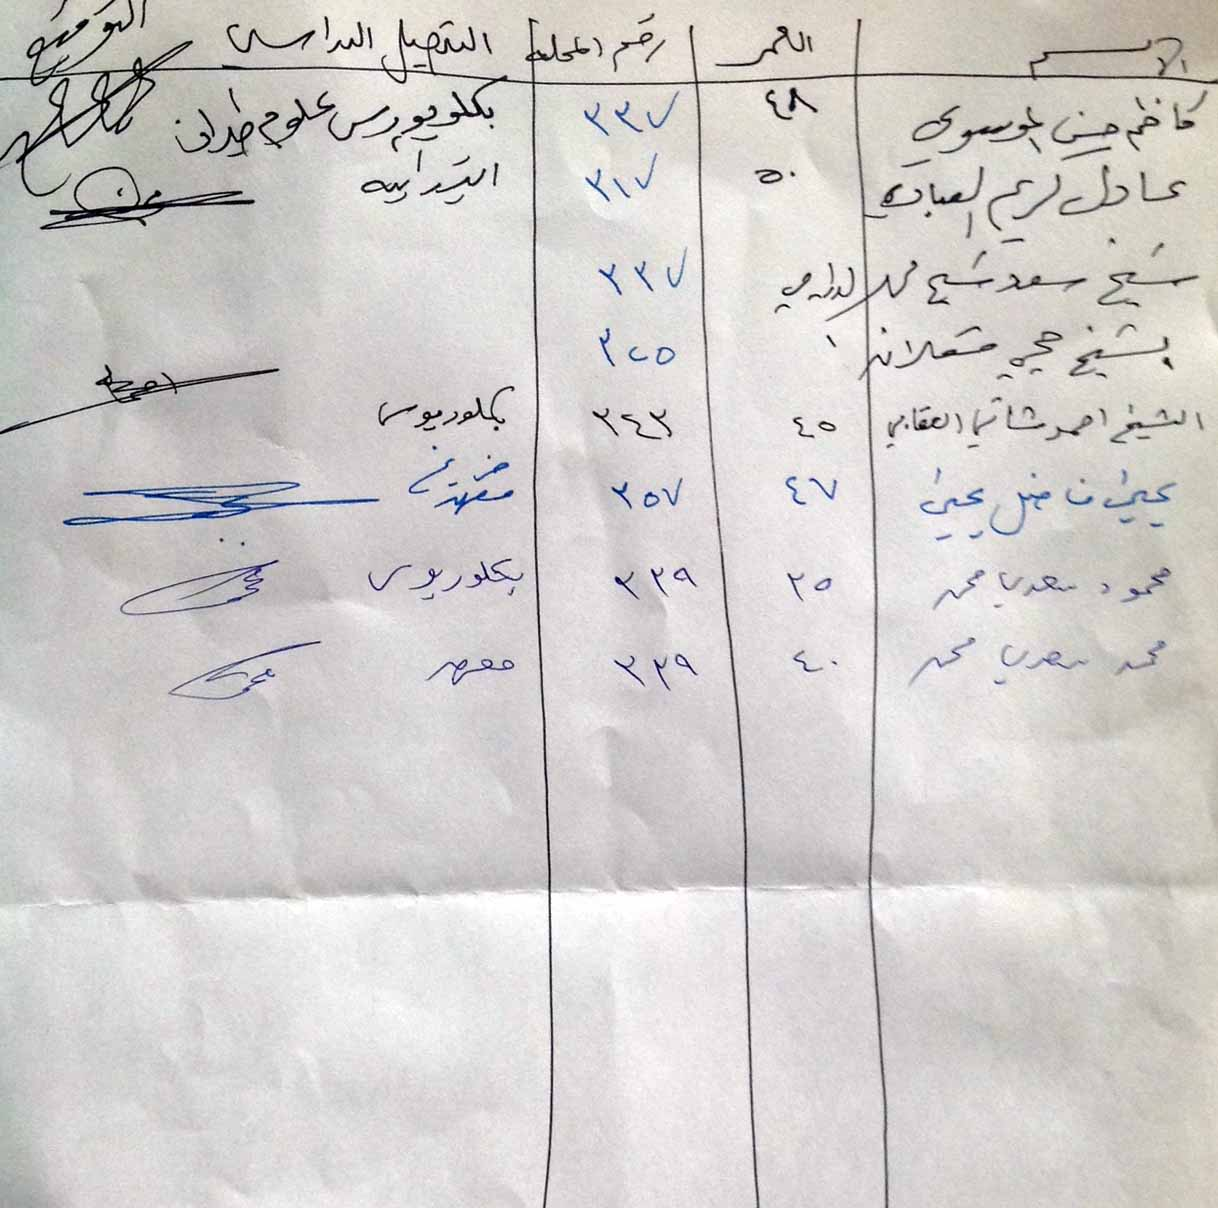 الاسم العمر رقم المحلة التحصيل الدراسي التوقيع
كاظم حسن الموسوي ٤٨ ٣٣٧ بكلوريورس علوم طيران
عادل كريم العبادي ٥٠ ٣١٧ ابتدائيه
شيخ سعد شيخ محمد ٣٣٧
شيخ حجي ٣٢٥
الشيخ احمد شاتي العقابي ٤٥ ٣٤٣ بكلوريوس
يحيى فاضل يحيى ٤٧ ٣٥٧ خريج معهد
محمود سعدي محمد ٢٥ ٣٢٩ بكلوريوس
محمد سعدي محمد ٤٠ ٣٢٩ معهد